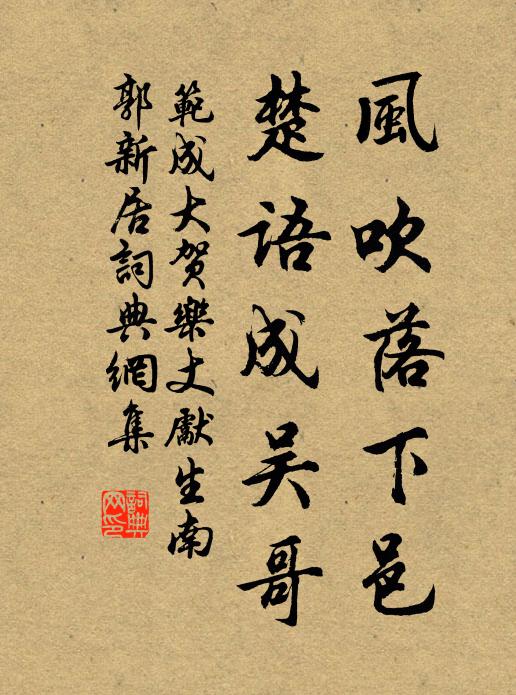 風吹落下邑
楚語成吴哥
範成大賀樂丈獻生南
郭新居詞典網集
詞典网印